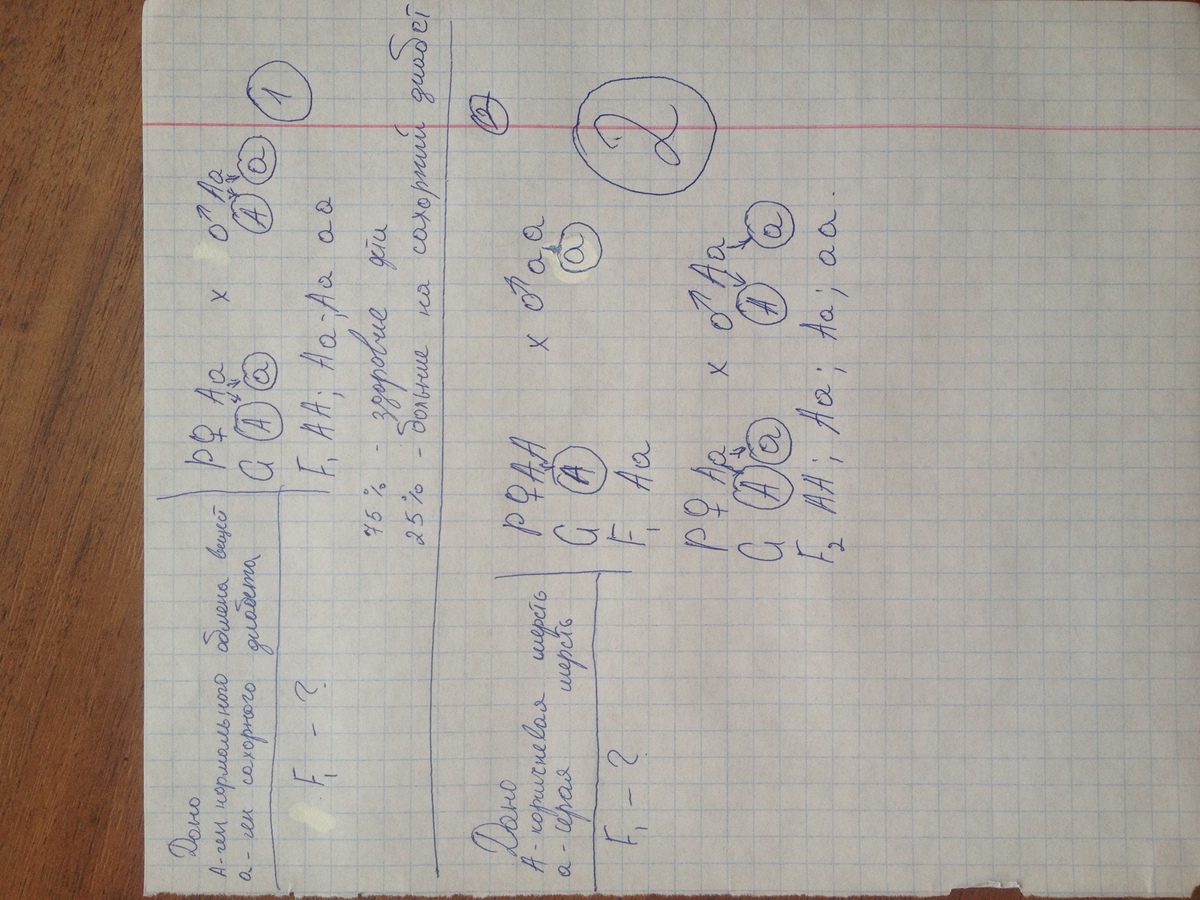 Дано
А-ген нормального обмена вещей
а-ген сахорного диабета
F₁ - ?
P ♀ Aa x ♂ Aa
G A a A a
F₁ AA; Aa; Aa aa
75% - здоровые дети
25% - больные на сахорний диабет
1
2
Дано
А-коричневая шерсть
а-серая шерсть
F₁ - ?
P ♀ AA x ♂ aa
G A a
F₁ Aa
P ♀ Aa x ♂ Aa
G A a A a
F₂ AA; Aa; Aa; aa.
2